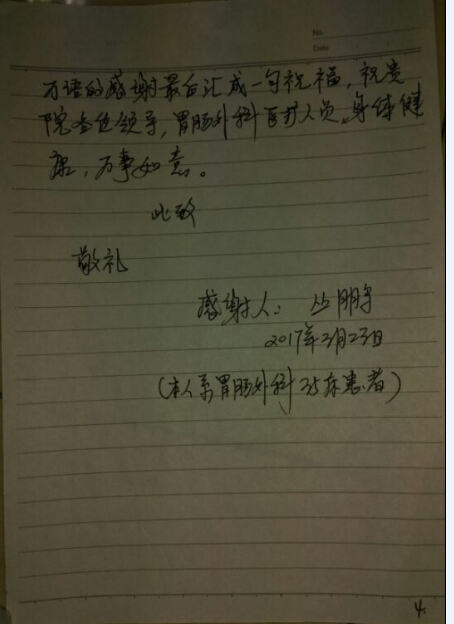 No.
Date
万语的感谢最后汇成一句祝福，祝贵
院各位领导，胃肠外科医护人员，身体健
康，万事如意。
此致
敬礼
感谢人：丛朋
2017年3月23日
（本人系胃肠外科35床患者）
4.